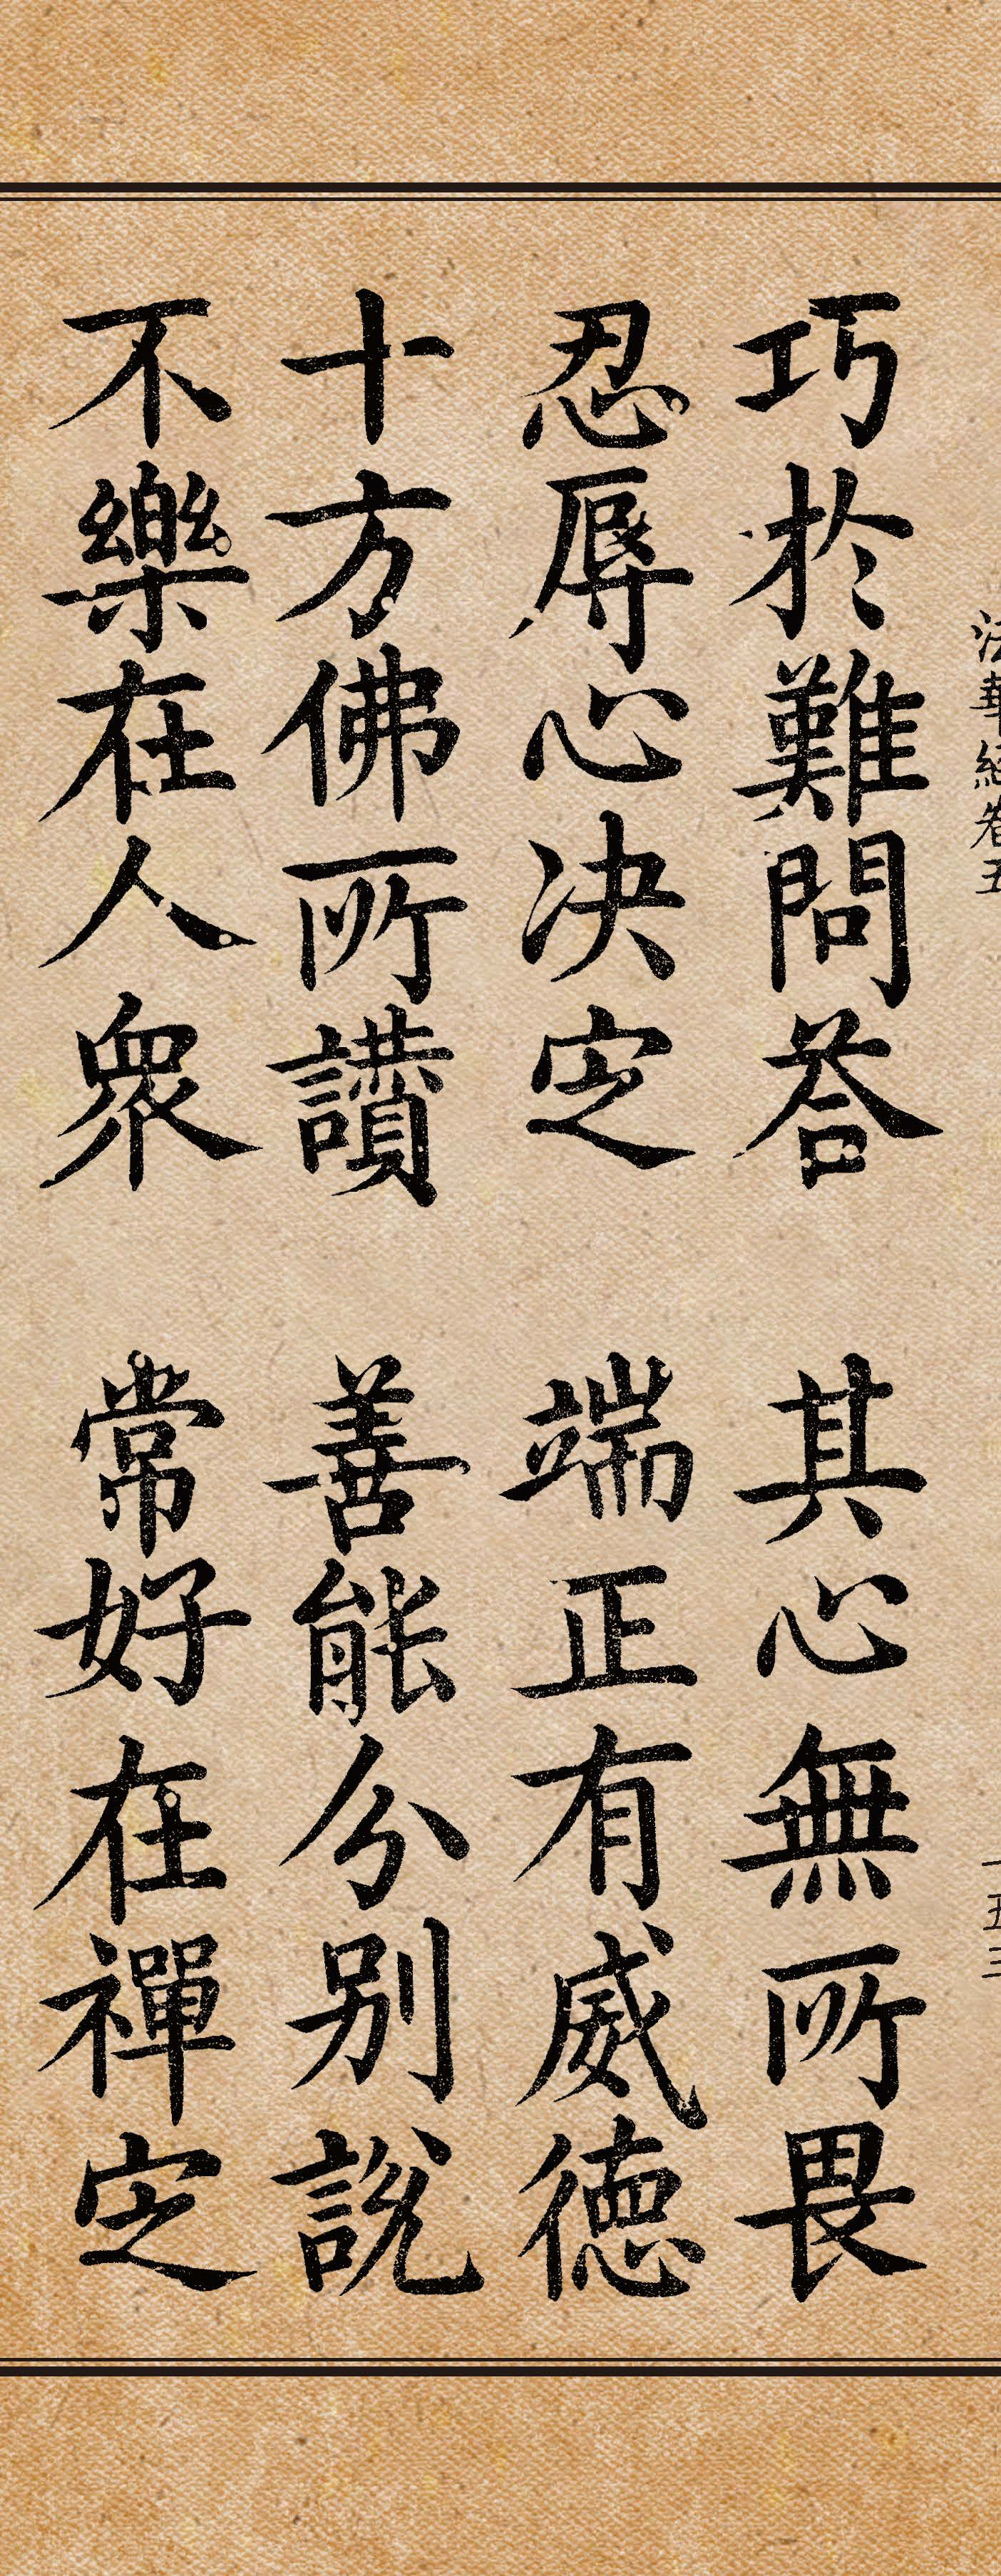 法華經卷五
一五三
巧於難問荅 其心無所畏
忍辱心决定 端正有威德
十方佛所讃 善能分別說
不樂在人衆 常好在禪定